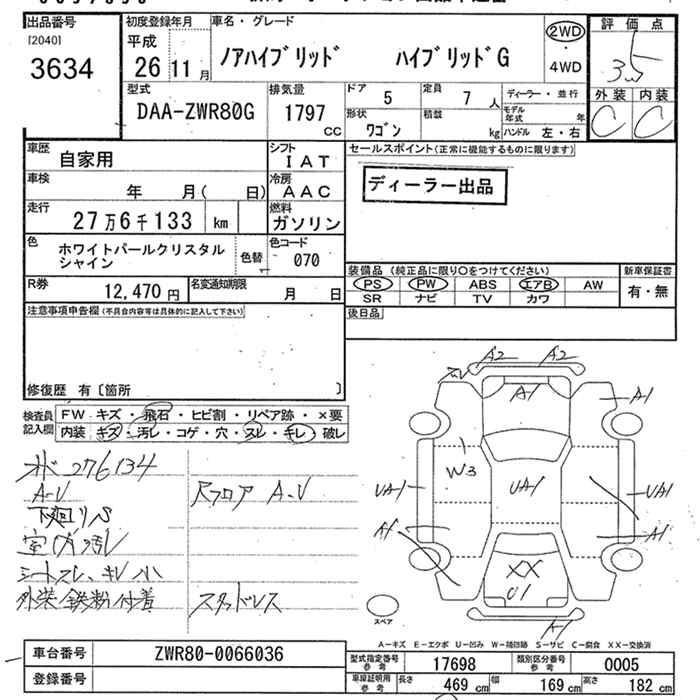 出品番号
[2040]
3634
初度登録年月
平成
26 11 月
車名・グレード
ノアハイブリッド ハイブリッドG
2WD
・
4WD
評価点
外装 内装
C C
型式
DAA-ZWR80G
排気量
1797
CC
ドア 5
定員 7 人
形状 ワゴン
積載 kg
ディーラー・並行
モデル年式 年
ハンドル 左・右
車歴 自家用
シフト IAT
車検 年 月( 日)
冷房 AAC
走行 27万6千133 km
燃料 ガソリン
色 ホワイトパールクリスタル
シャイン
色替
色コード 070
R券 12,470 円
名変通知期限 月 日
セールスポイント(正常に機能するものに限ります)
ディーラー出品
装備品(純正品に限り〇をつけてください)
PS PW ABS エアB AW
SR ナビ TV カワ
新車保証書
有・無
後日品
注意事項申告欄(不具合内容等は具体的に記入して下さい)
修復歴 有〔箇所 〕
検査員記入欄
FW キズ・飛石・ヒビ割・リペア跡・×要
内装 キズ・汚レ・コゲ・穴・スレ・キレ・破レ
276134
A-V
下廻リS
室内汚レ
シートスレ、キレ小
外装鉄粉付着
Rフロア A-V
スタッドレス
A2 A2
A1 A1
W3
UA1 UA1 UA1
A1 A1
XX
U1
A1
スペア
A－キズ E－エクボ U－凹み W－補修跡 S－サビ C－腐食 XX－交換済
車台番号 ZWR80-0066036
登録番号
型式指定番号参考 17698
類別区分番号参考 0005
車検証明用参考 長さ 469 cm 幅 169 cm 高さ 182 cm